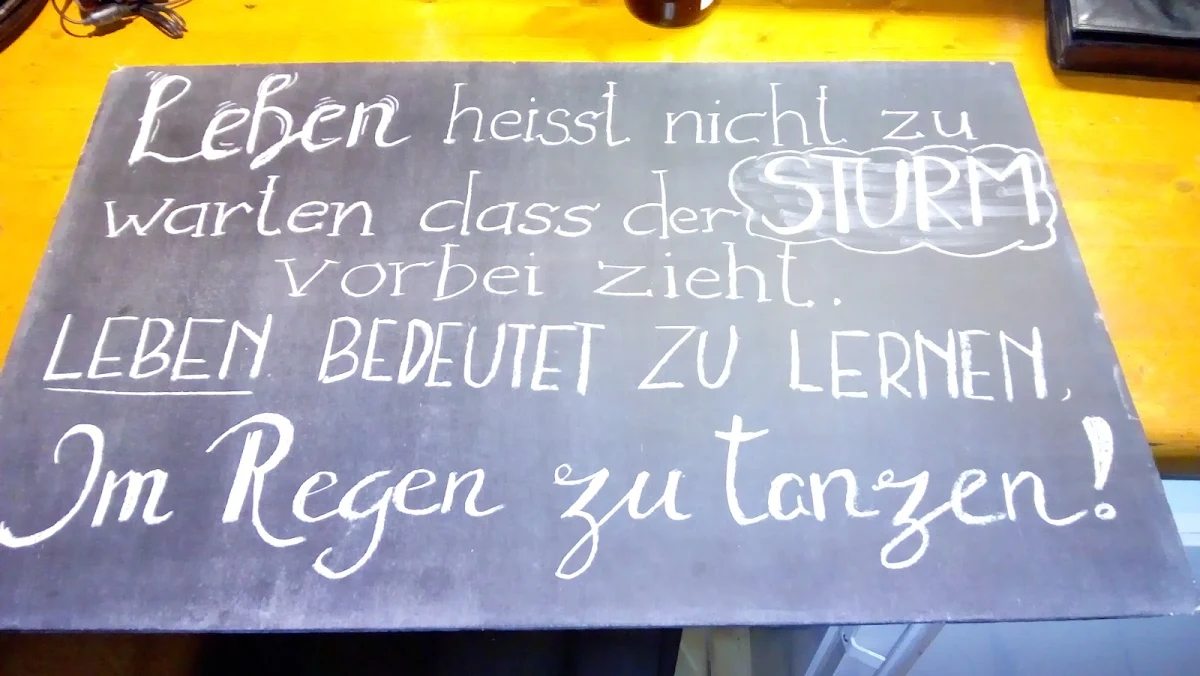 Leben heisst nicht zu
warten dass der STURM
vorbei zieht.
LEBEN BEDEUTET ZU LERNEN,
Im Regen zu tanzen!